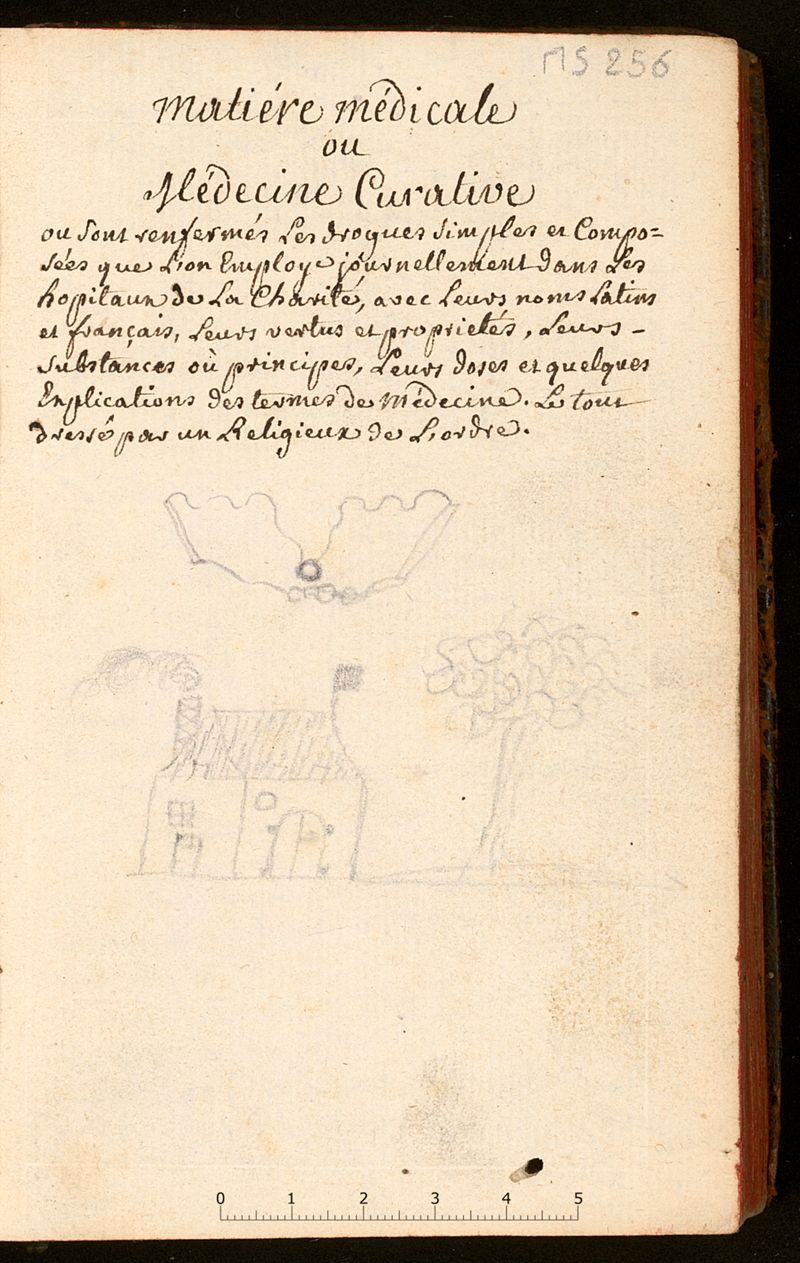 MS 256
Matiére médicale
ou
Médecine Curative
ou sont renfermés Les drogues simples et Compo=
sées que L'on Employe journellement dans Les
hopitaux de La Charité, avec Leurs noms Latins
et français, Leurs vertus et proprietés, Leurs -
substances où principes, Leurs doses et quelques
Explications des termes de Médecine. Le tout
dressé par un Religieux de L'ordre.
0 1 2 3 4 5